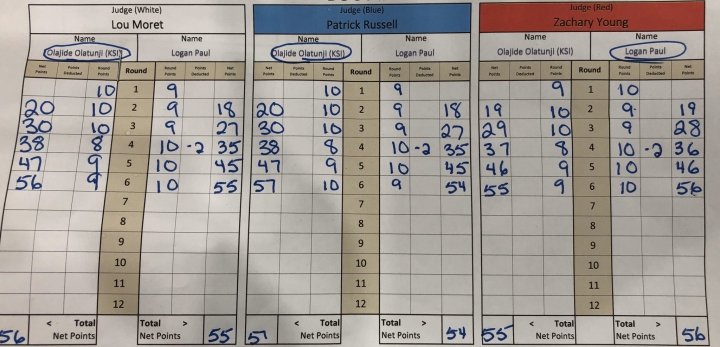 Judge (White)
Lou Moret
Name Name
Olajide Olatunji (KSI) Logan Paul
Net Points Points Deducted Round Points Round Round Points Points Deducted Net Points
10 1 9
20 10 2 9 18
30 10 3 9 27
38 8 4 10 -2 35
47 9 5 10 45
56 9 6 10 55
7
8
9
10
11
12
56 < Total Net Points Total > Net Points 55
Judge (Blue)
Patrick Russell
Name Name
Olajide Olatunji (KSI) Logan Paul
Net Points Points Deducted Round Points Round Round Points Points Deducted Net Points
10 1 9
20 10 2 9 18
30 10 3 9 27
38 8 4 10 -2 35
47 9 5 10 45
57 10 6 9 54
7
8
9
10
11
12
57 < Total Net Points Total > Net Points 54
Judge (Red)
Zachary Young
Name Name
Olajide Olatunji (KSI) Logan Paul
Net Points Points Deducted Round Points Round Round Points Points Deducted Net Points
9 1 10
19 10 2 9 19
29 10 3 9 28
37 8 4 10 -2 36
46 9 5 10 46
55 9 6 10 56
7
8
9
10
11
12
55 < Total Net Points Total > Net Points 56